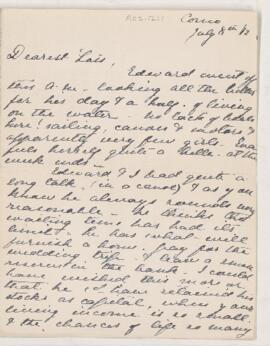 Como
July 8th/12
Dearest Lois,
Edward went off
this a.m. looking all the better
for his day & a half of living
on the water. No lack of boats
here! sailing, canoes & motors &
apparently very few girls. Eva
quite a belle at the
week ends.
Edward & I had quite a
long talk (in a canoe) & as you
know he always sounds very
reasonable. He thinks that
waiting time has had its
limit. He has what will
furnish a home, pay for the
wedding trip & leave a small
reserve in the bank. I could
have wished this more or
that he have retained his
stocks as capital, when your
living income is so small
& the chances of life so many